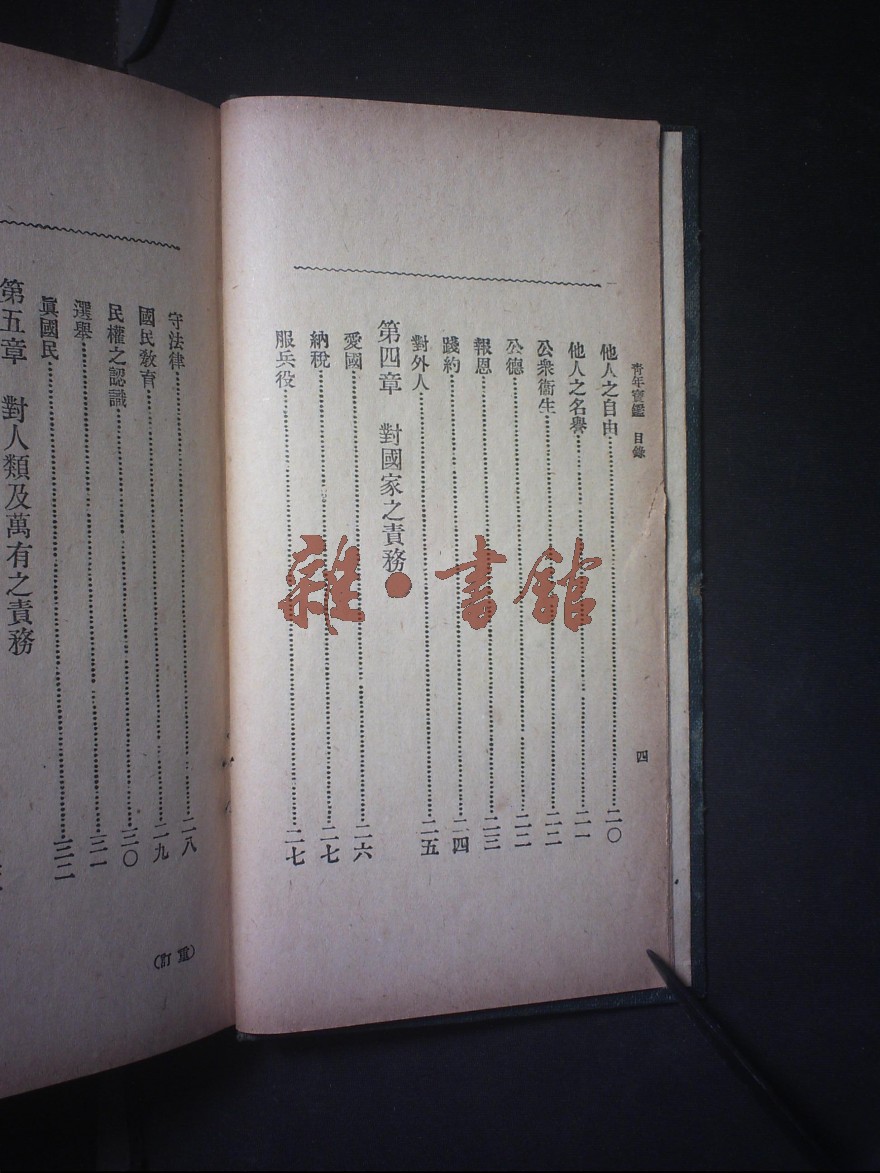 青年寶鑑 目錄
四
他人之自由 二〇
他人之名譽 二一
公衆衞生 二二
公德 二二
報恩 二三
踐約 二四
對外人 二五
第四章 對國家之責務
愛國 二六
納稅 二七
服兵役 二七
守法律 二八
國民敎育 二九
民權之認識 三〇
選舉 三一
眞國民 三二
第五章 對人類及萬有之責務
(重訂)
雜·書館